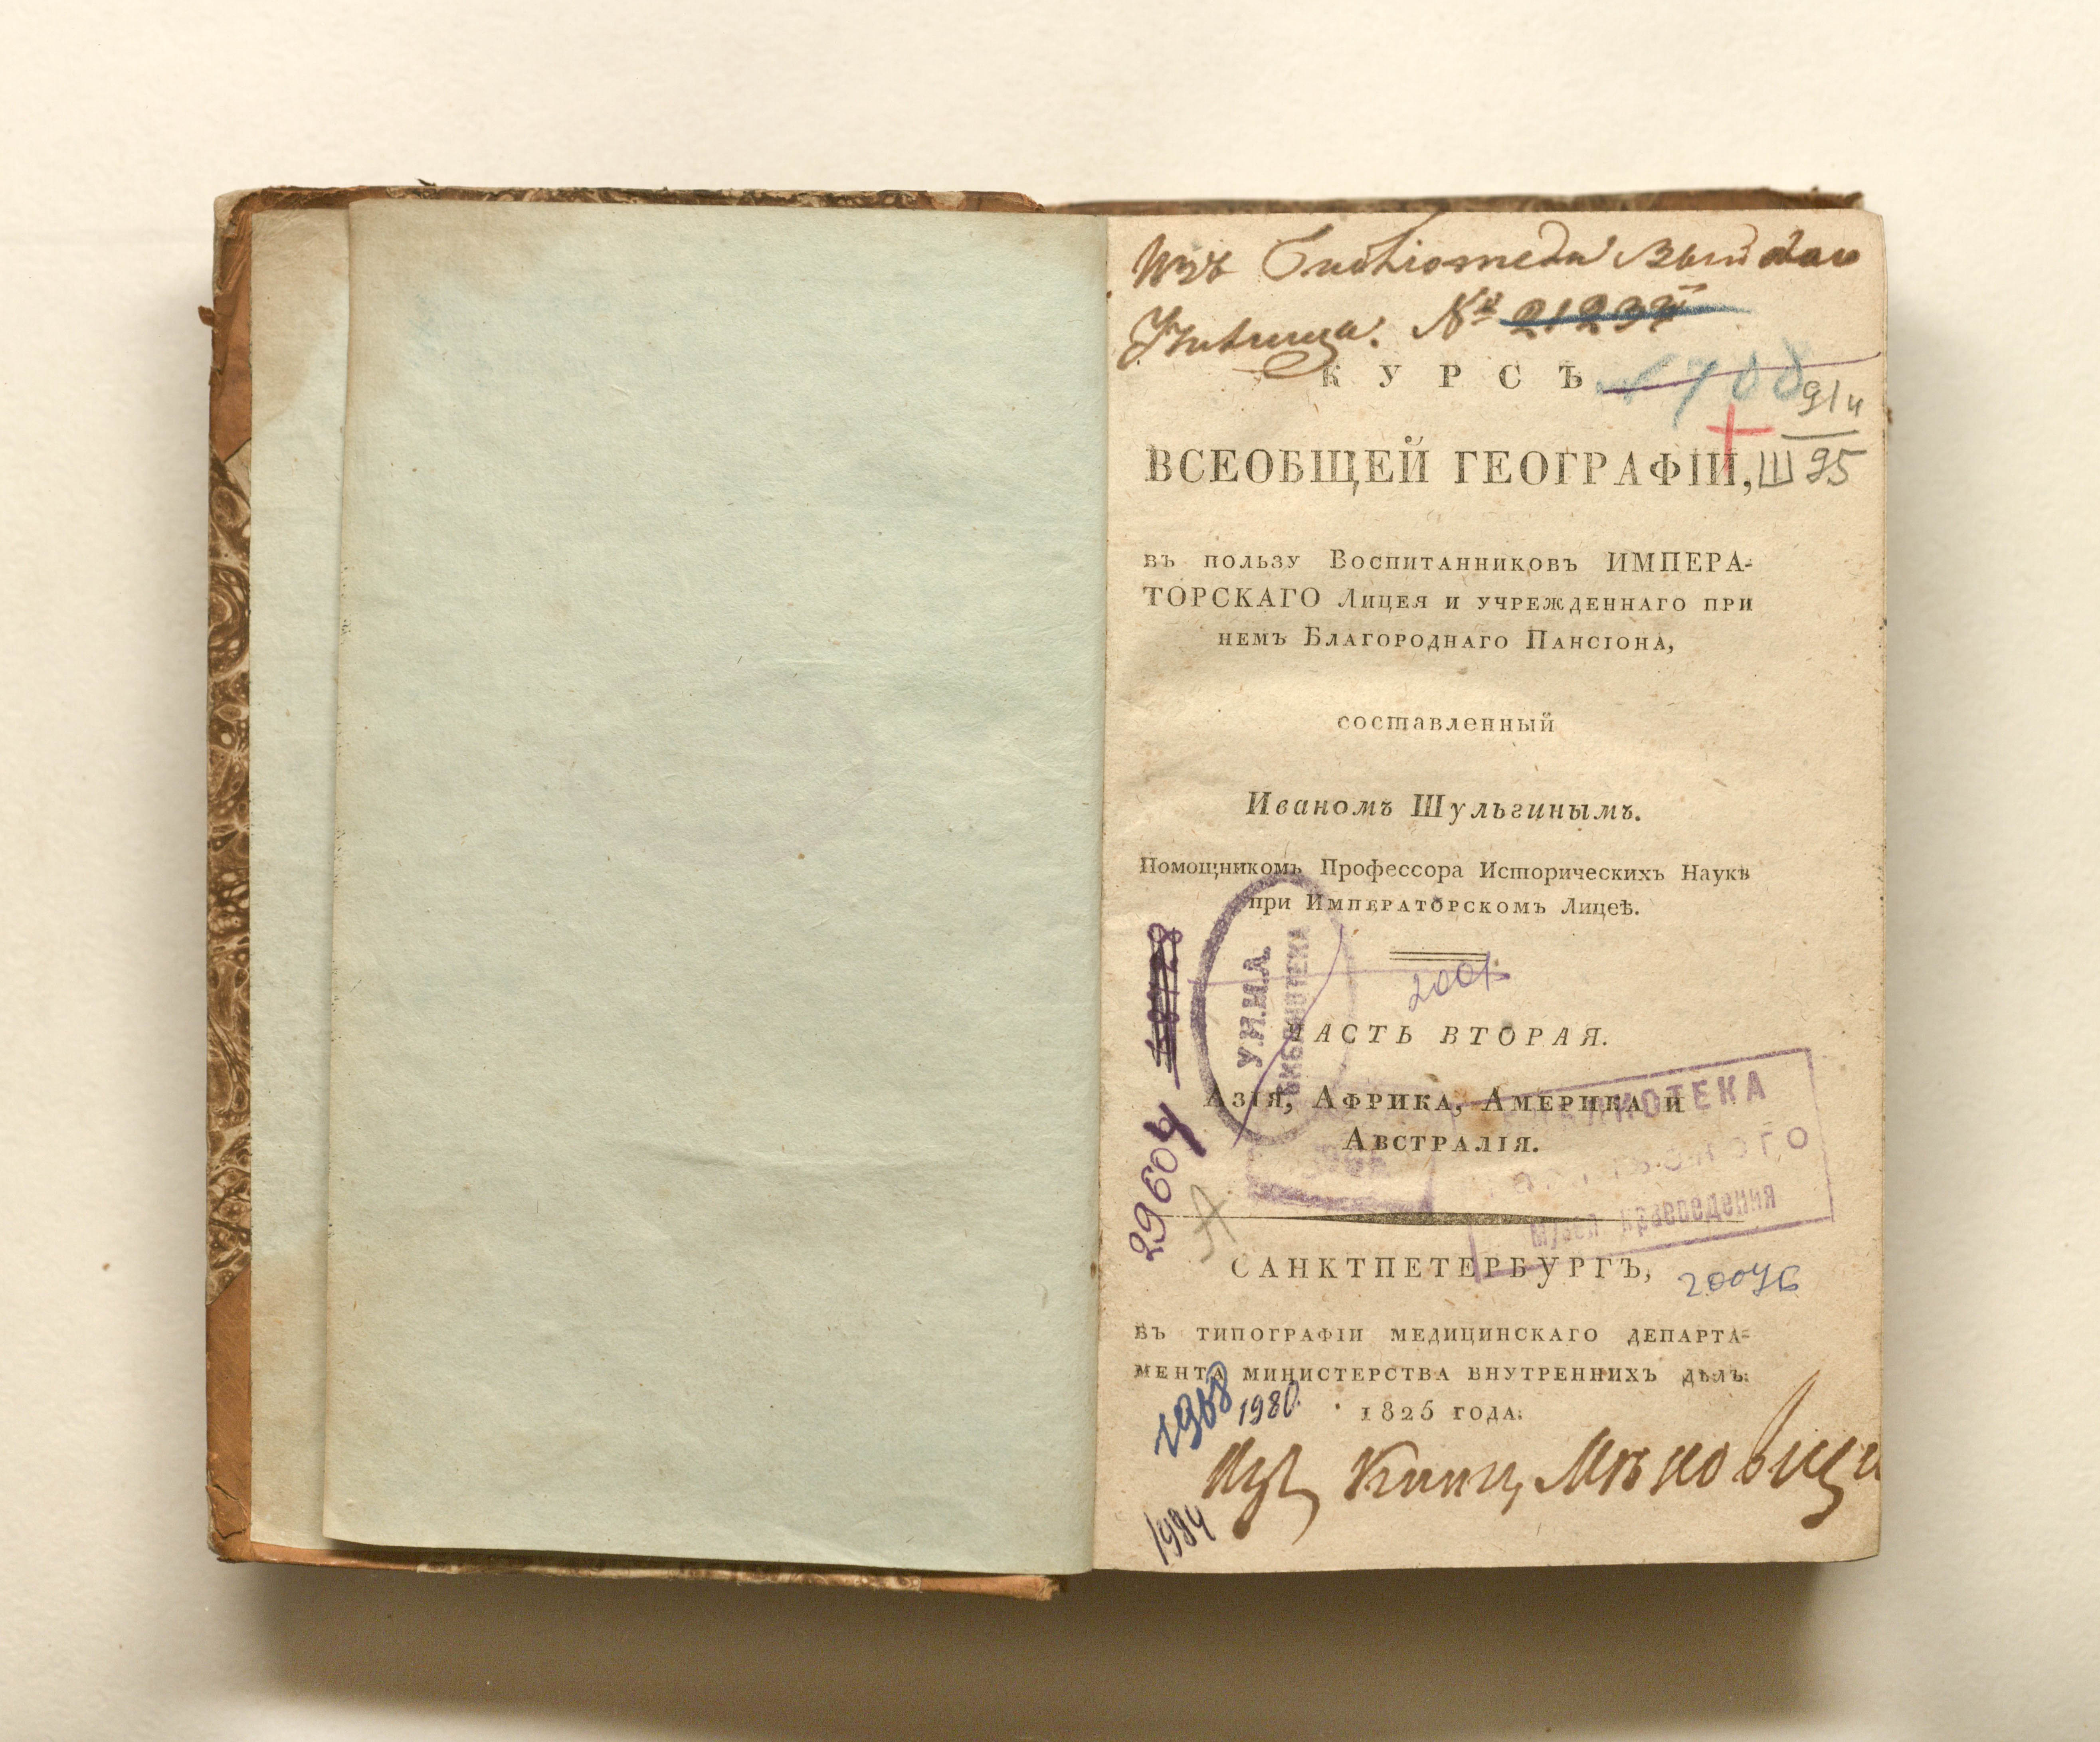 Изъ Библіотеки Выйскаго
Училища. № 2123
КУРСЪ
1708
91и
Ш95
ВСЕОБЩЕЙ ГЕОГРАФІИ,
въ пользу Воспитанниковъ ИМПЕРА-
ТОРСКАГО Лицея и учрежденнаго при
немъ Благороднаго Пансіона,
составленный
Иваномъ Шульгинымъ.
Помощникомъ Профессора Историческихъ Наукъ
при Императорскомъ Лицеѣ.
У.И.И.А.
БИБЛИОТЕКА
ЧАСТЬ ВТОРАЯ.
Азія, Африка, Америка и
Австралія.
БИБЛИОТЕКА
Музея краеведения
29604
А
САНКТПЕТЕРБУРГЪ,
20076
въ типографіи медицинскаго департа-
мента министерства внутреннихъ дѣлъ.
1825 года.
1968
1980.
Изъ Книгъ
1984